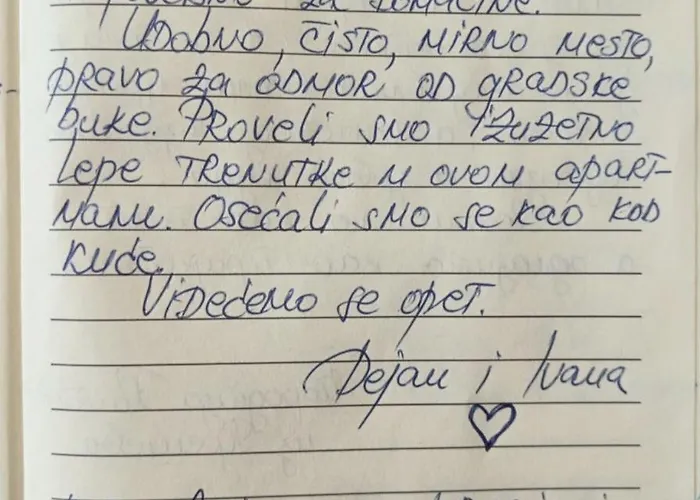 za domaćine.
Udobno, čisto, mirno mesto,
pravo za odmor od gradske
buke. Proveli smo izuzetno
lepe trenutke u ovom apart-
manu. Osećali smo se kao kod
kuće.
Videćemo se opet.
Dejan i Ivana